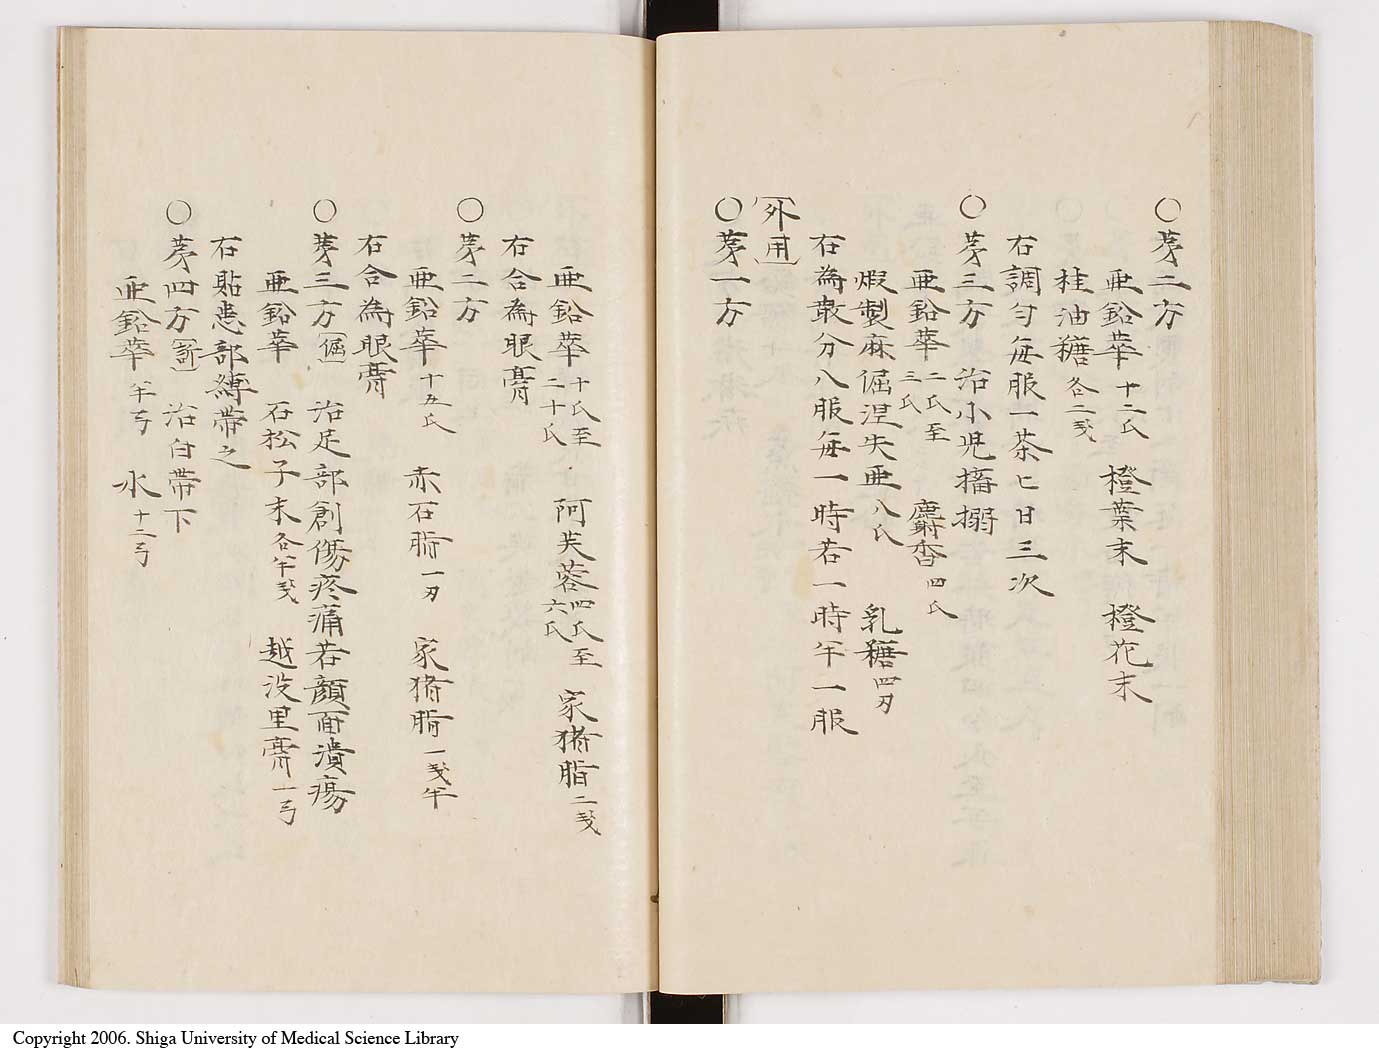 ○第二方
亜鉛華十二氏 橙葉末 橙花末
桂油糖各二戔
右調匀毎服一茶匕日三次
○第三方治小児搐搦
亜鉛華二氏至三氏 麝香四氏
煆製麻倔涅失亜八氏 乳糖四刃
右為散分八服毎一時若一時半一服
外用
○第一方
亜鉛華十氏至二十氏 阿芙蓉四氏至六氏 家猪脂二戔
右合為眼膏
○第二方
亜鉛華十五氏 赤石脂一刃 家猪脂一戔半
右合為眼膏
○第三方倔 治足部創傷疼痛若顔面潰瘍
亜鉛華 石松子末各半戔 越没里膏一弓
右貼患部縛帯之
○第四方 治白帯下
亜鉛華半弓 水十二弓
Copyright 2006. Shiga University of Medical Science Library